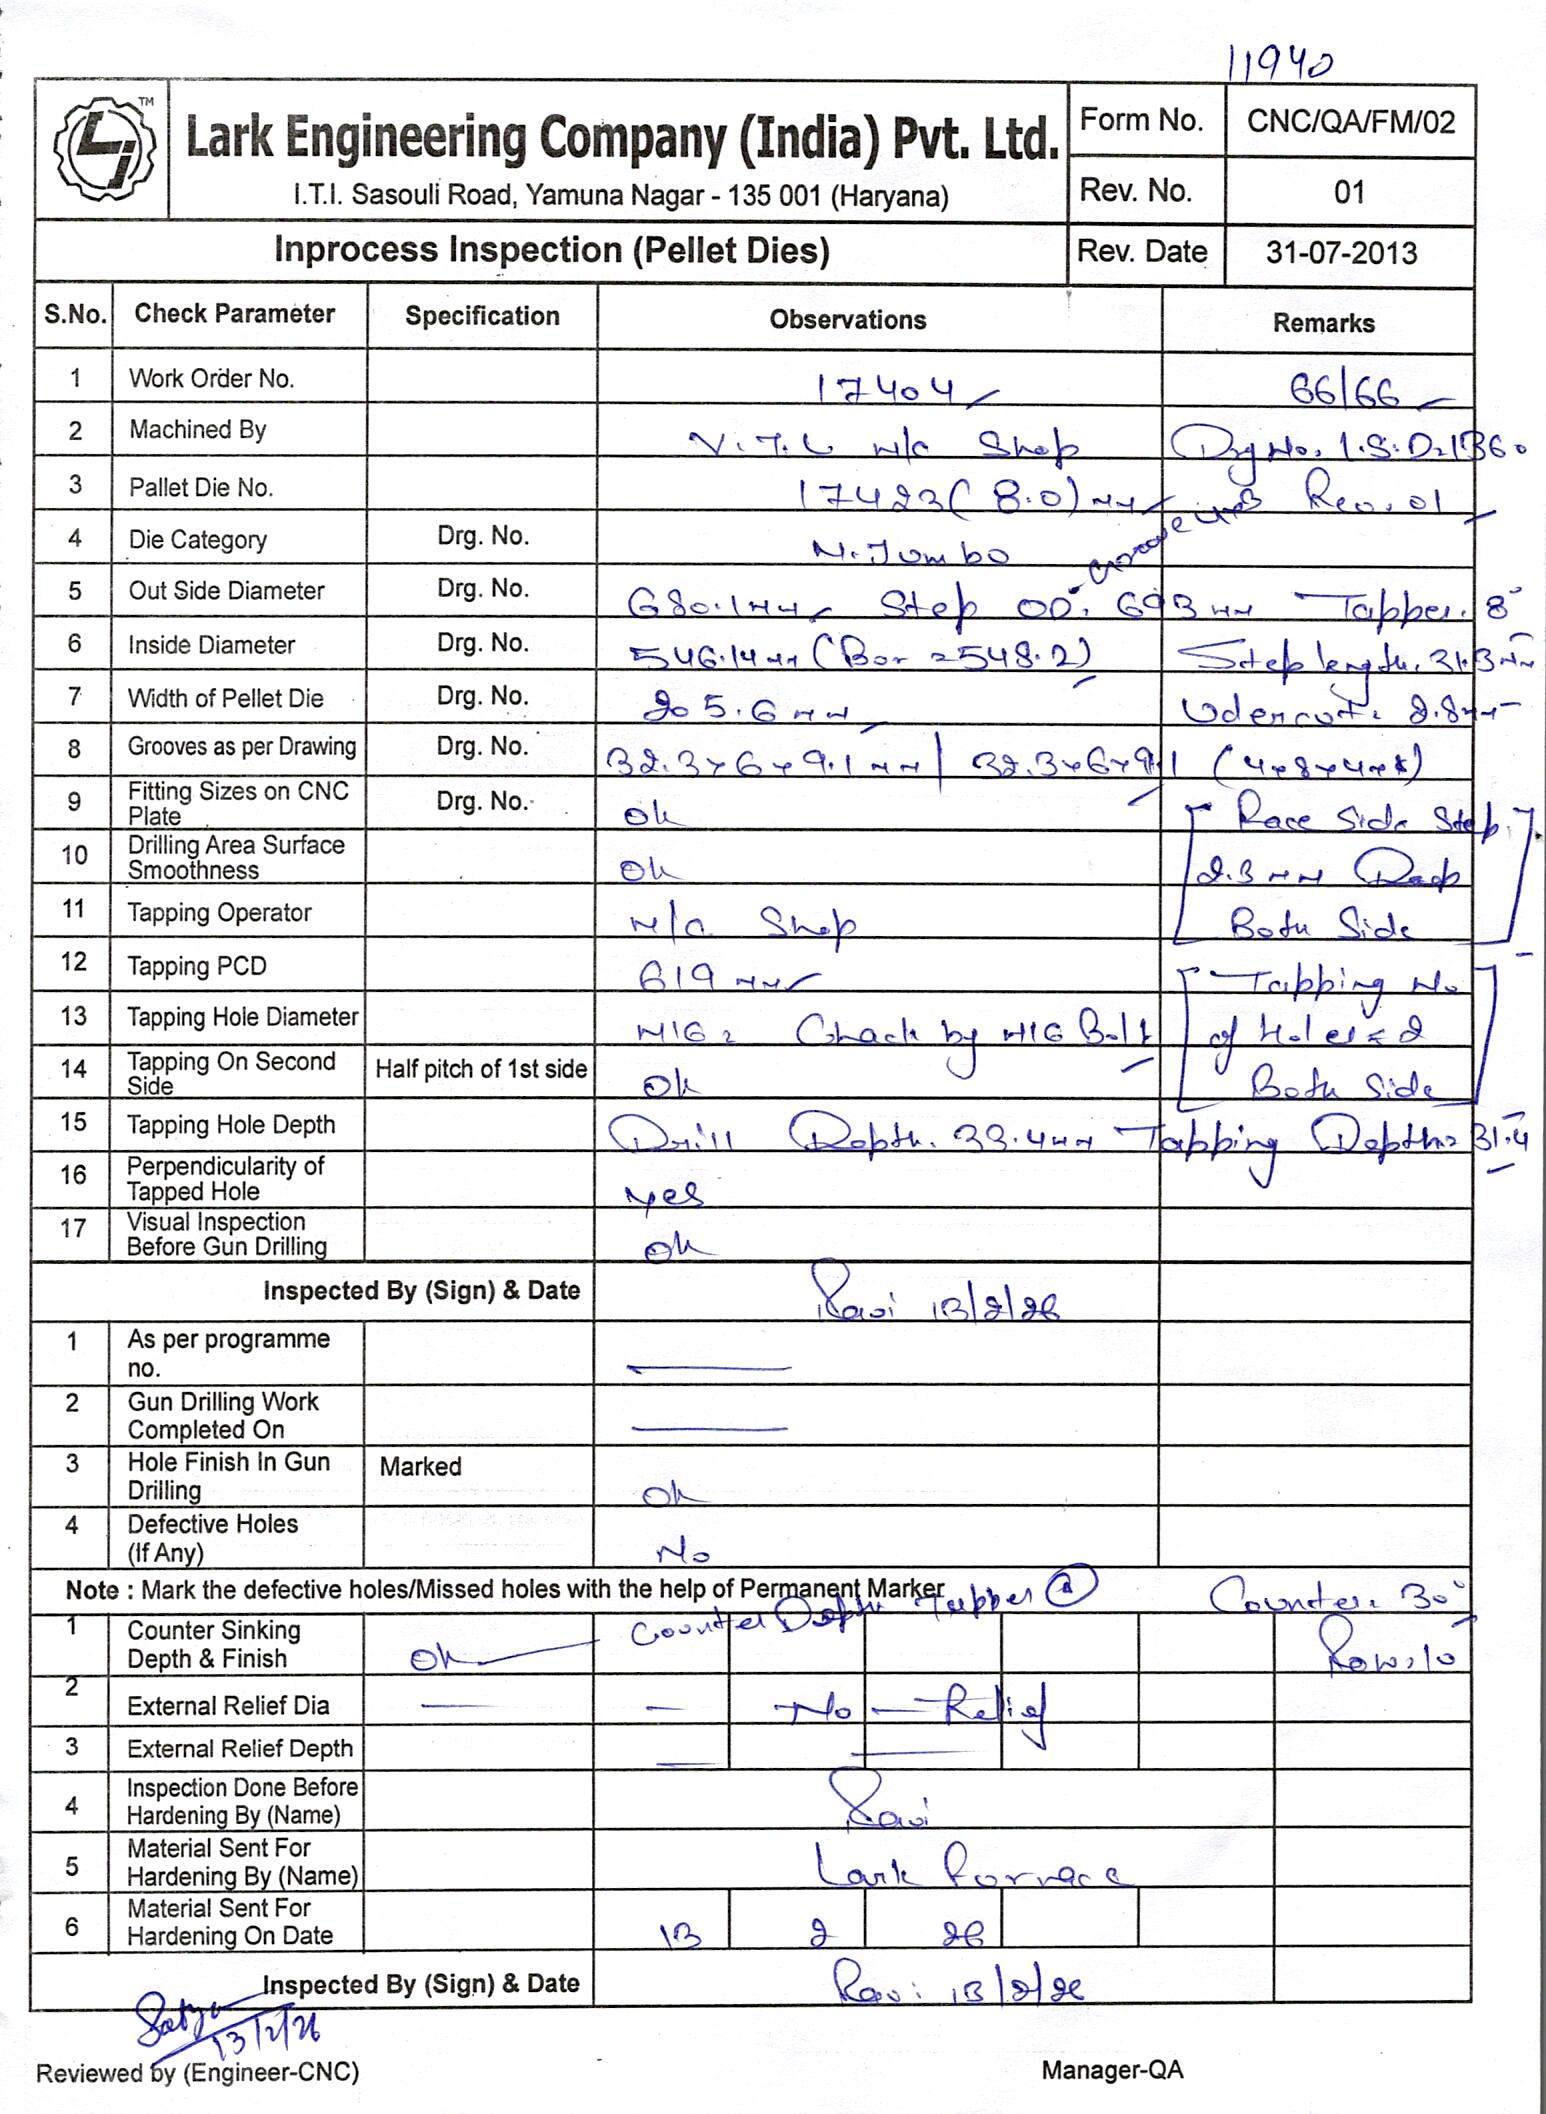 11940
TM
Lark Engineering Company (India) Pvt. Ltd.
I.T.I. Sasouli Road, Yamuna Nagar - 135 001 (Haryana)
Form No. CNC/QA/FM/02
Rev. No. 01
Inprocess Inspection (Pellet Dies) Rev. Date 31-07-2013
S.No. Check Parameter Specification Observations Remarks
1 Work Order No. 17404 66/66
2 Machined By V.T.L M/c Shop Drg No. I.S.D-1360
3 Pallet Die No. 17423 (8.0) mm Rev. 01
4 Die Category Drg. No. N. Jumbo
5 Out Side Diameter Drg. No. 680.1mm Step OD. 693 mm Tapper. 8°
6 Inside Diameter Drg. No. 546.14mm (Bor = 548.2) Step length. 31.3mm
7 Width of Pellet Die Drg. No. 205.6mm Udercut. 2.8mm
8 Grooves as per Drawing Drg. No. 32.3x6x9.1mm | 32.3x6x9.1
9 Fitting Sizes on CNC Plate Drg. No. Ok Race Side Step.
10 Drilling Area Surface Smoothness Ok 2.3 mm Deep
11 Tapping Operator M/c Shop Both Side
12 Tapping PCD 619 mm Tapping No
13 Tapping Hole Diameter M16 = Chack by M16 Bolt of Holes = 2
14 Tapping On Second Side Half pitch of 1st side Ok Both Side
15 Tapping Hole Depth Drill Depth. 33.4mm Tapping Depth = 31.4
16 Perpendicularity of Tapped Hole yes
17 Visual Inspection Before Gun Drilling Ok
Inspected By (Sign) & Date Ravi 13/2/26
1 As per programme no.
2 Gun Drilling Work Completed On
3 Hole Finish In Gun Drilling Marked Ok
4 Defective Holes (If Any) No
Note : Mark the defective holes/Missed holes with the help of Permanent Marker
Counter Depth Tapper Counter. 30°
1 Counter Sinking Depth & Finish Ok Row. 10
2 External Relief Dia — — No — Relief
3 External Relief Depth
4 Inspection Done Before Hardening By (Name) Ravi
5 Material Sent For Hardening By (Name) Lark Fornace
6 Material Sent For Hardening On Date 13 2 26
Inspected By (Sign) & Date Ravi 13/2/26
13/2/26
Reviewed by (Engineer-CNC) Manager-QA